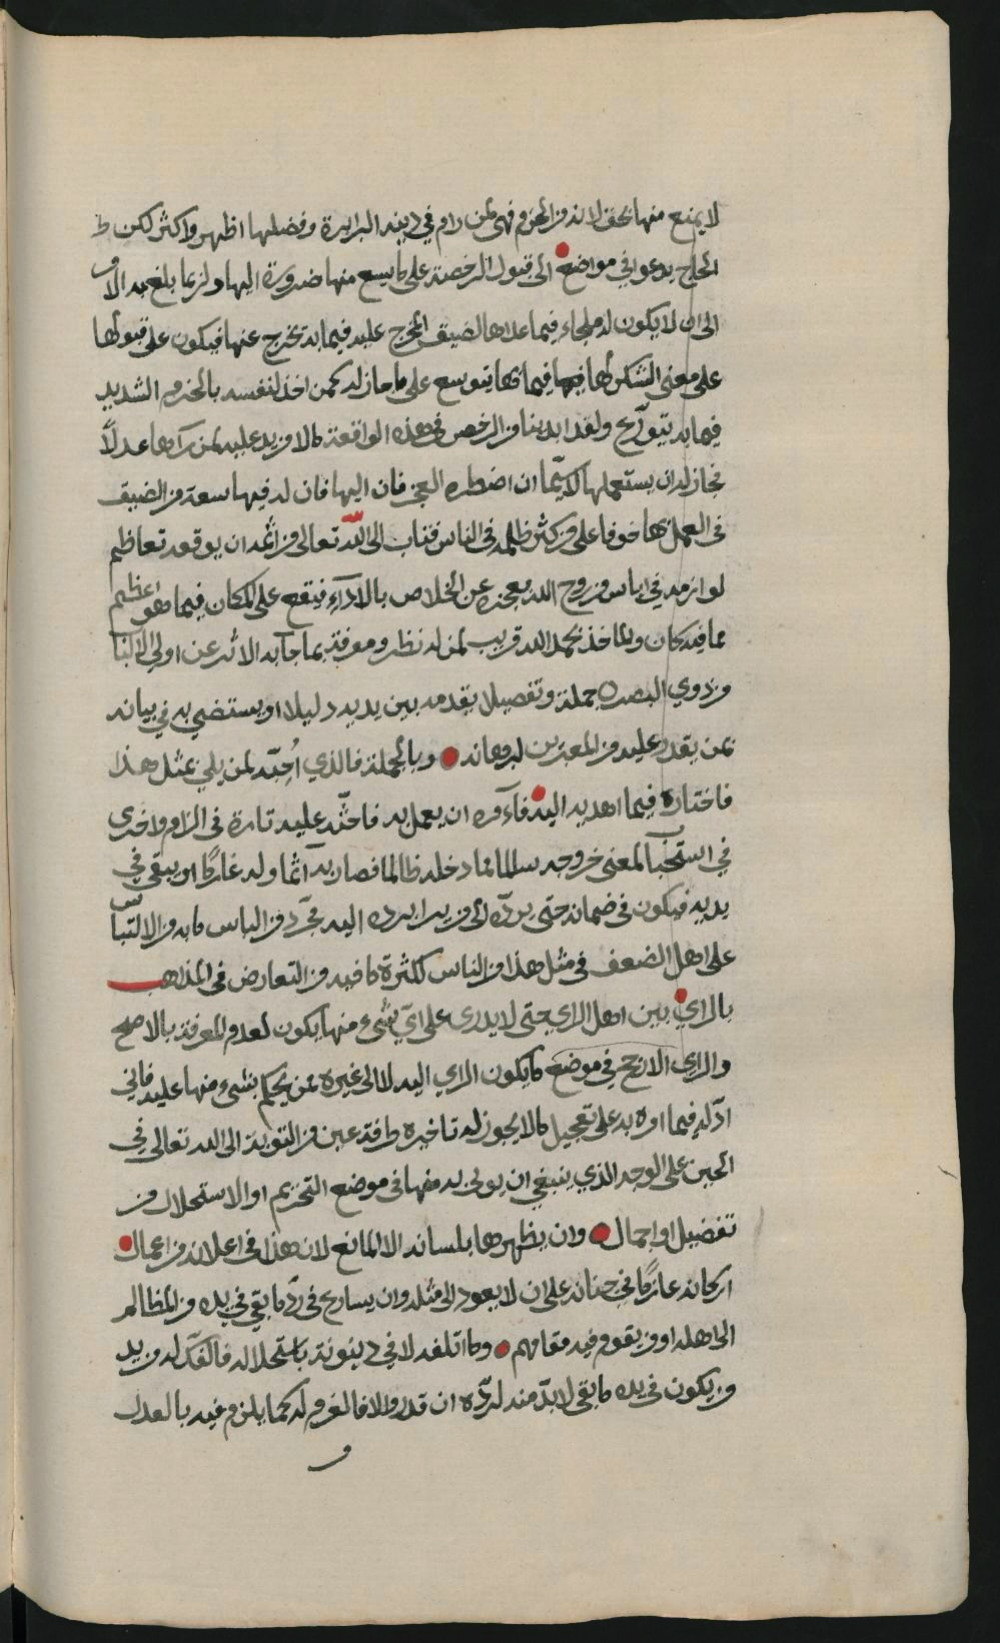 لا يمنع منها بحق لانه من الحزم فهي لمن رام في دينه البرابرة وفضلها اظهر واكثر لكن ط
الحاج يدعوا في مواضع الى قبول الرخصة على ما يسع منها ضرورة اليها ولربما بلغ به الامر
الى ان لا يكون له ملجاء فيما عداها لضيق المخرج عليه فيما به تخرج عنها فيكون على قبولها
على معنى الشكر لها فيما بها يتوسع على ما جاز له كمن اخذ لنفسه بالحزم الشديد
فيما به يتورع ولقد ابدينا من الرخص في هذه الواقعة ما لا مزيد عليه لمن رآها عدلاً
فجاز له ان يستعملها لا سيما ان اضطره العجز فان اليها فان له فيها سعة من الضيق
في العمل بها خوفا على من كثر ظلمه في الناس فتاب الى الله تعالى من اثمه ان يوقعه تعاظم
لو الزمه في اياس من روح الله بعجزه عن الخلاص بالاداء فيقع على المكان فيما هو اعظم
مما فيه كان والماخذ بحمد الله قريب لمن له نظر ومعرفة بما جاء به الاثر عن اولي الالباب
من ذوي البصره جملة وتفصيلا يقدمه بين يديه دليلا او يستضي به في بيانه
ممن يقدر عليه من المعبرين لبرهانه وبالجملة فالذي اُحبّه لمن بلي بمثل هذا
فاختاره فيما اهديه اليه فآمره ان يعمل به فاحثّه عليه تارة في الزام واخرى
في استحباب لمعنى خروجه سالما لما دخله ظالما فصار به آثما وله غارمًا او يبقى في
يديه فيكون في ضمانه حتى يردّه الى من يبرا برده اليه مجرّد من الباس ما به من الالتباس
على اهل الضعف في مثل هذا من الناس لكثرة ما فيه من التعارض في المذاهب
بالراي بين اهل الراي حتى لا يدرى على ايّ شيء منها يكون لعدم المعرفة بالاصح
والراي الارجح في موضع ما يكون الراي اليه لا الى غيره ممن يحكم بشيء منها عليه فاني
ادلّه فيما امره به على تعجيل ما لا يجوز له تاخيره طرفة عين من التوبة الى الله تعالى في
الحين على الوجه الذي ينبغي ان يوتى به منها في موضع التحريم او الاستحلال من
تفصيل او اجمال وان يظهرها بلسانه الا لمانع لان هذا في اعلانه من اعمال
اركانه عازمًا في جنانه على ان لا يعود الى مثله وان يسارع في ردّ ما بقي في يده من المظالم
الى اهله او من يقوم فيه مقامهم وما اتلفه لا في دينونة باستحلاله فالفكّ له من يد
من يكون في يده ما بقي لا بدّ منه لردّه ان قدر والا فالغرم له كما يلزم فيه بالعدل
و